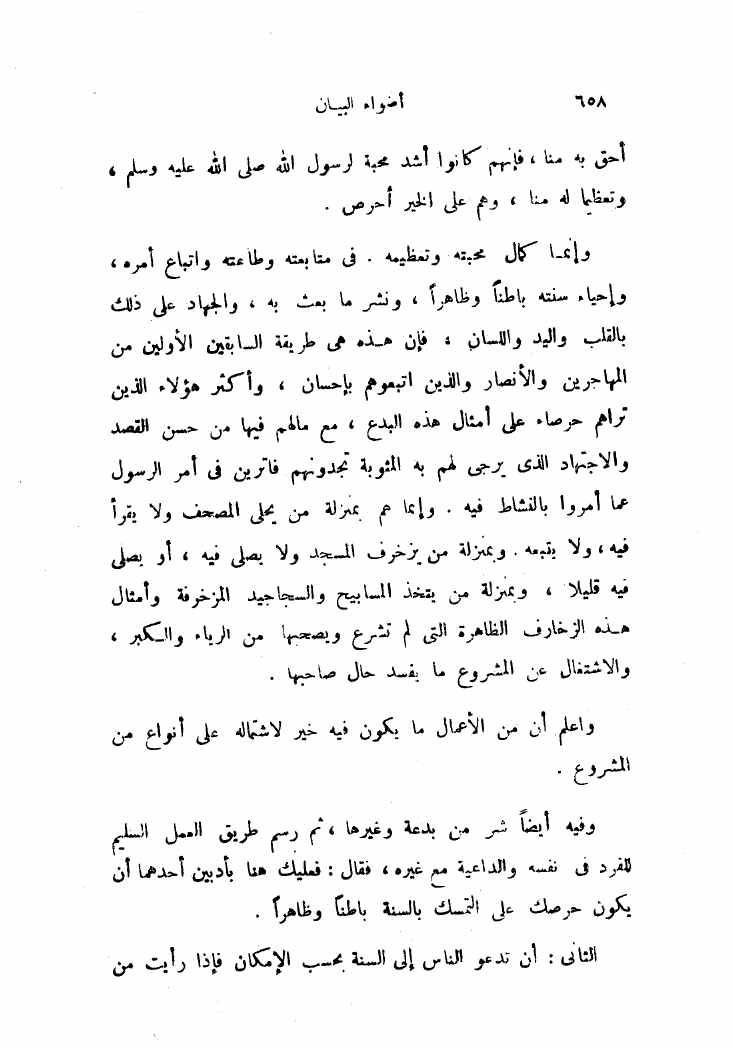 ٦٥٨
أضواء البيان
أحق به منا ، فإنهم كانوا أشد محبة لرسول الله صلى الله عليه وسلم ،
وتعظيما له منا ، وهم على الخير أحرص .
وإنما كمال محبته وتعظيمه . فى متابعته وطاعته واتباع أمره ،
وإحياء سنته باطناً وظاهراً ، ونشر ما بعث به ، والجهاد على ذلك
بالقلب واليد واللسان ؛ فإن هذه هى طريقة السابقين الأولين من
المهاجرين والأنصار والذين اتبعوهم بإحسان ، وأكثر هؤلاء الذين
تراهم حرصاء على أمثال هذه البدع ، مع مالهم فيها من حسن القصد
والاجتهاد الذى يرجى لهم به المثوبة تجدونهم فاترين فى أمر الرسول
عما أمروا بالنشاط فيه . وإنما هم بمنزلة من يحلى المصحف ولا يقرأ
فيه ، ولا يتبعه . وبمنزلة من يزخرف المسجد ولا يصلى فيه ، أو يصلى
فيه قليلا ، وبمنزلة من يتخذ المسابيح والسجاجيد المزخرفة وأمثال
هذه الزخارف الظاهرة التى لم تشرع ويصحبها من الرياء والكبر ،
والاشتغال عن المشروع ما يفسد حال صاحبها .
واعلم أن من الأعمال ما يكون فيه خير لاشتماله على أنواع من
المشروع .
وفيه أيضاً شر من بدعة وغيرها ، ثم رسم طريق العمل السليم
للفرد فى نفسه والداعية مع غيره ، فقال : فعليك هنا بأدبين أحدهما أن
يكون حرصك على التمسك بالسنة باطناً وظاهراً .
الثانى : أن تدعو الناس إلى السنة بحسب الإمكان فإذا رأيت من